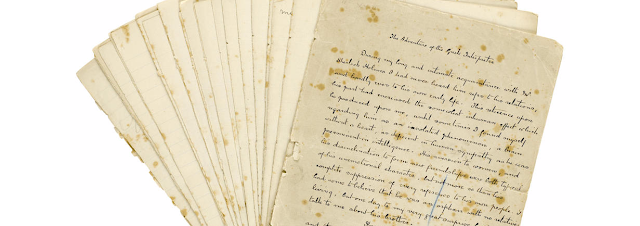 The Adventure of the Greek Interpreter
During my long and intimate acquaintance with Mr
Sherlock Holmes I had never heard him refer to his relations,
and hardly ever to his own early life. This reticence upon
his part had increased the somewhat inhuman effect which
he produced upon me, until sometimes I found myself
regarding him as an isolated phenomenon, a brain
without a heart, as deficient in human sympathy as he was
preeminent in intelligence. His aversion to women and
his disinclination to form new friendships were both typical
of his unemotional character, but not more so than his
complete suppression of every reference to his own people. I
had come to believe that he was an orphan with no relatives
living, but one day to my very great surprise he
talk to me about his brother.